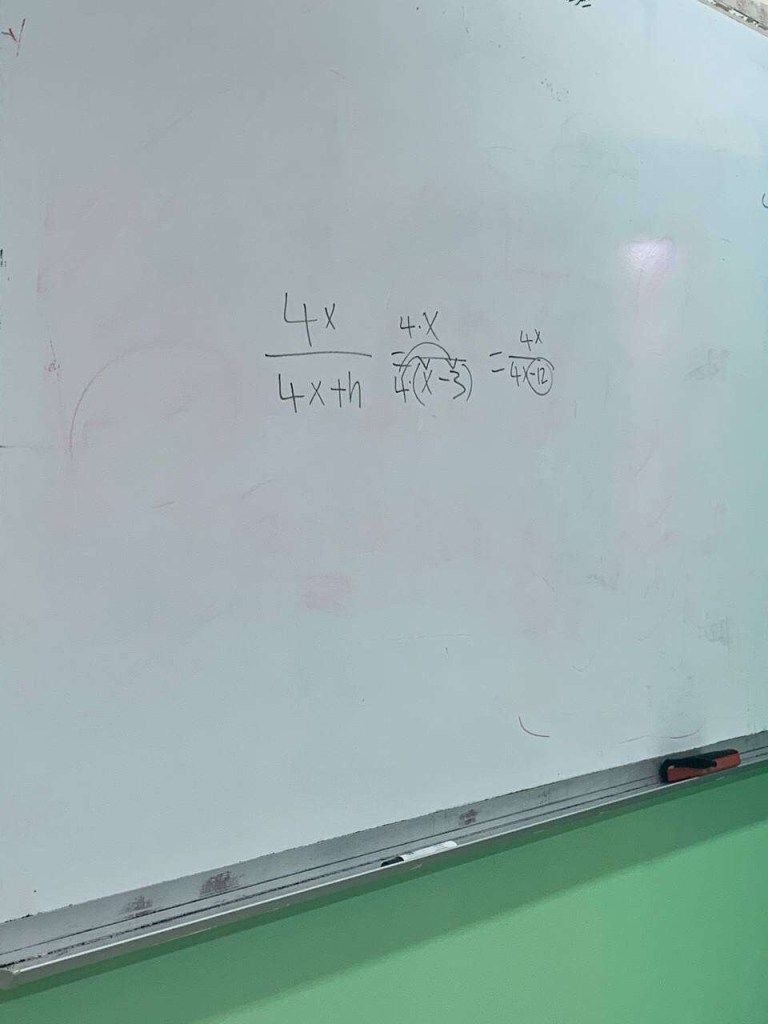 4x/4x+h = 4·x/4·(x-3) = 4x/4x-12